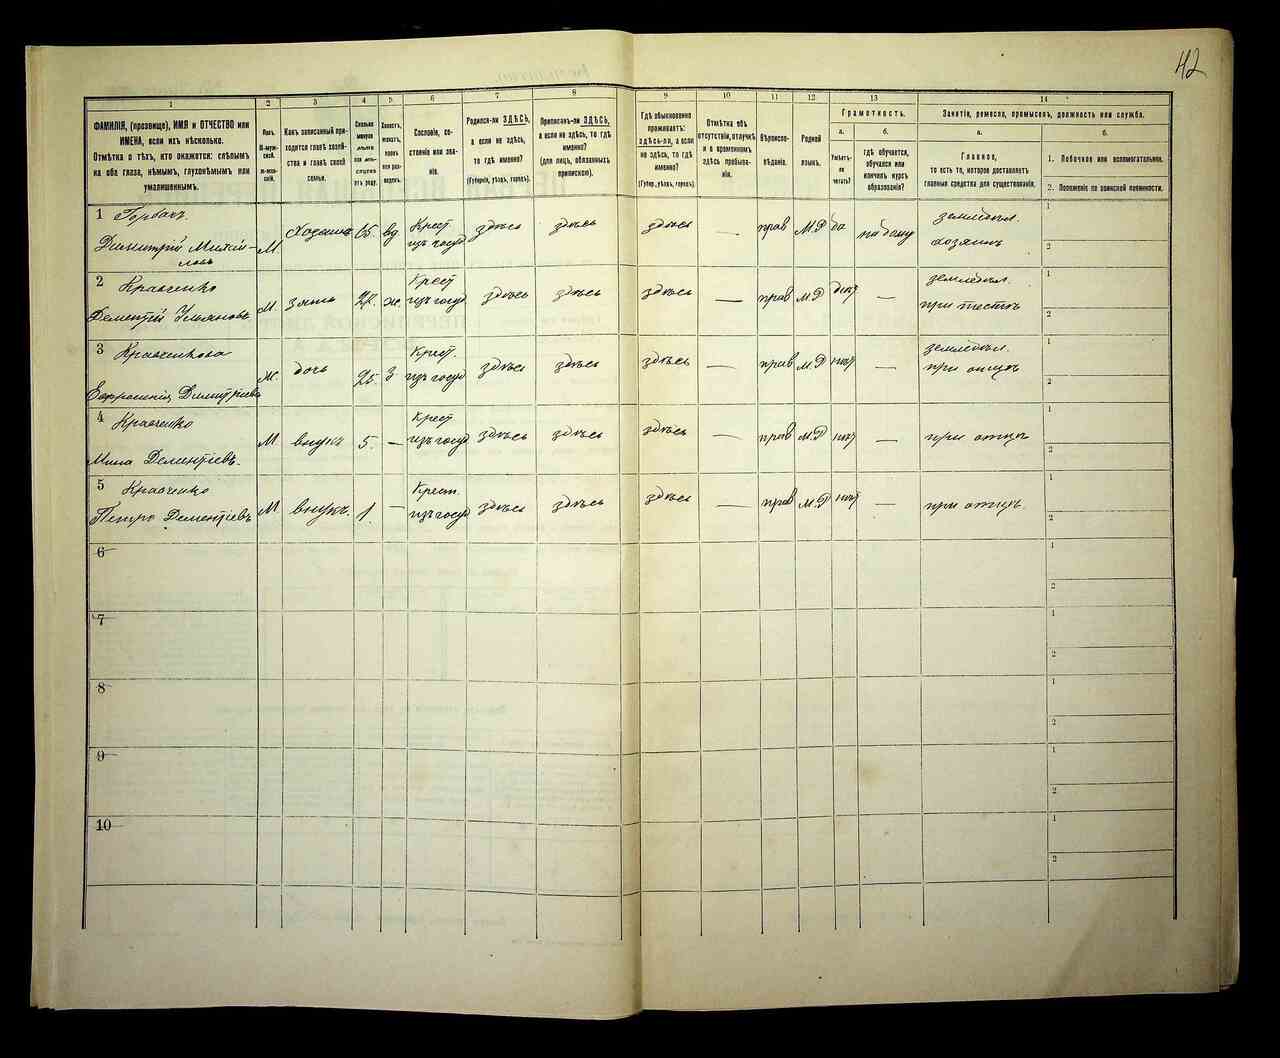 42
1
2
3
4
5.
6
7
8
9
10
11
12
13
14
ФАМИЛІЯ, (прозвище), ИМЯ и ОТЧЕСТВО или
ИМЕНА, если ихъ нѣсколько.
Отмѣтка о тѣхъ, кто окажется: слѣпымъ
на оба глаза, нѣмымъ, глухонѣмымъ или
умалишеннымъ.
Полъ.
М-муж-
ской.
Ж-жен-
скій.
Какъ записанный при-
ходится главѣ хозяй-
ства и главѣ своей
семьи.
Сколько
минуло
лѣтъ
или мѣ-
сяцевъ
отъ роду.
Холостъ,
женатъ,
вдовъ
или раз-
веденъ.
Сословіе, со-
стояніе или зва-
ніе.
Родился-ли ЗДѢСЬ,
а если не здѣсь,
то гдѣ именно?
(Губернія, уѣздъ, городъ).
Приписанъ-ли ЗДѢСЬ,
а если не здѣсь, то гдѣ
именно?
(для лицъ, обязанныхъ
припискою).
Гдѣ обыкновенно
проживаетъ:
здѣсь-ли, а если
не здѣсь, то гдѣ
именно?
(Губер., уѣздъ, городъ).
Отмѣтка объ
отсутствіи, отлучкѣ
и о временномъ
здѣсь пребыва-
ніи.
Вѣроиспо-
вѣданіе.
Родной
языкъ.
Грамотность.
а.
Умѣетъ-
ли
читать?
б.
гдѣ обучается,
обучался или
кончилъ курсъ
образованія?
Занятіе, ремесло, промыселъ, должность или служба.
а.
Главное,
то есть то, которое доставляетъ
главныя средства для существованія.
б.
1. Побочное или вспомогательное.
2. Положеніе по воинской повинности.
1 Горбачъ
Димитрій Михай-
ловъ
М. Хозяинъ 65. вд Крест изъ госуд здѣсь здѣсь здѣсь — прав М.Р да на дому земледѣл. хозяинъ 1 2
2 Кравченко
Дементій Ульяновъ
М. зять 28. ж. Крест изъ госуд здѣсь здѣсь здѣсь — прав М.Р — земледѣл. при тестѣ 1 2
3 Кравченкова
Евфросинія Димитріева
ж. дочь 25 З Крест. изъ госуд здѣсь здѣсь здѣсь — прав М.Р нѣт — земледѣл. при отцѣ 1 2
4 Кравченко
Мина Дементіевъ.
М. внукъ 5. — Крест изъ госуд здѣсь здѣсь здѣсь — прав М.Р нѣт — при отцѣ 1 2
5 Кравченко
Петро Дементіевъ
М. внукъ. 1 — Крест. изъ госуд здѣсь здѣсь здѣсь — прав М.Р нѣт — при отцѣ. 1 2
6 1 2
7 1 2
8 1 2
9 1 2
10 1 2